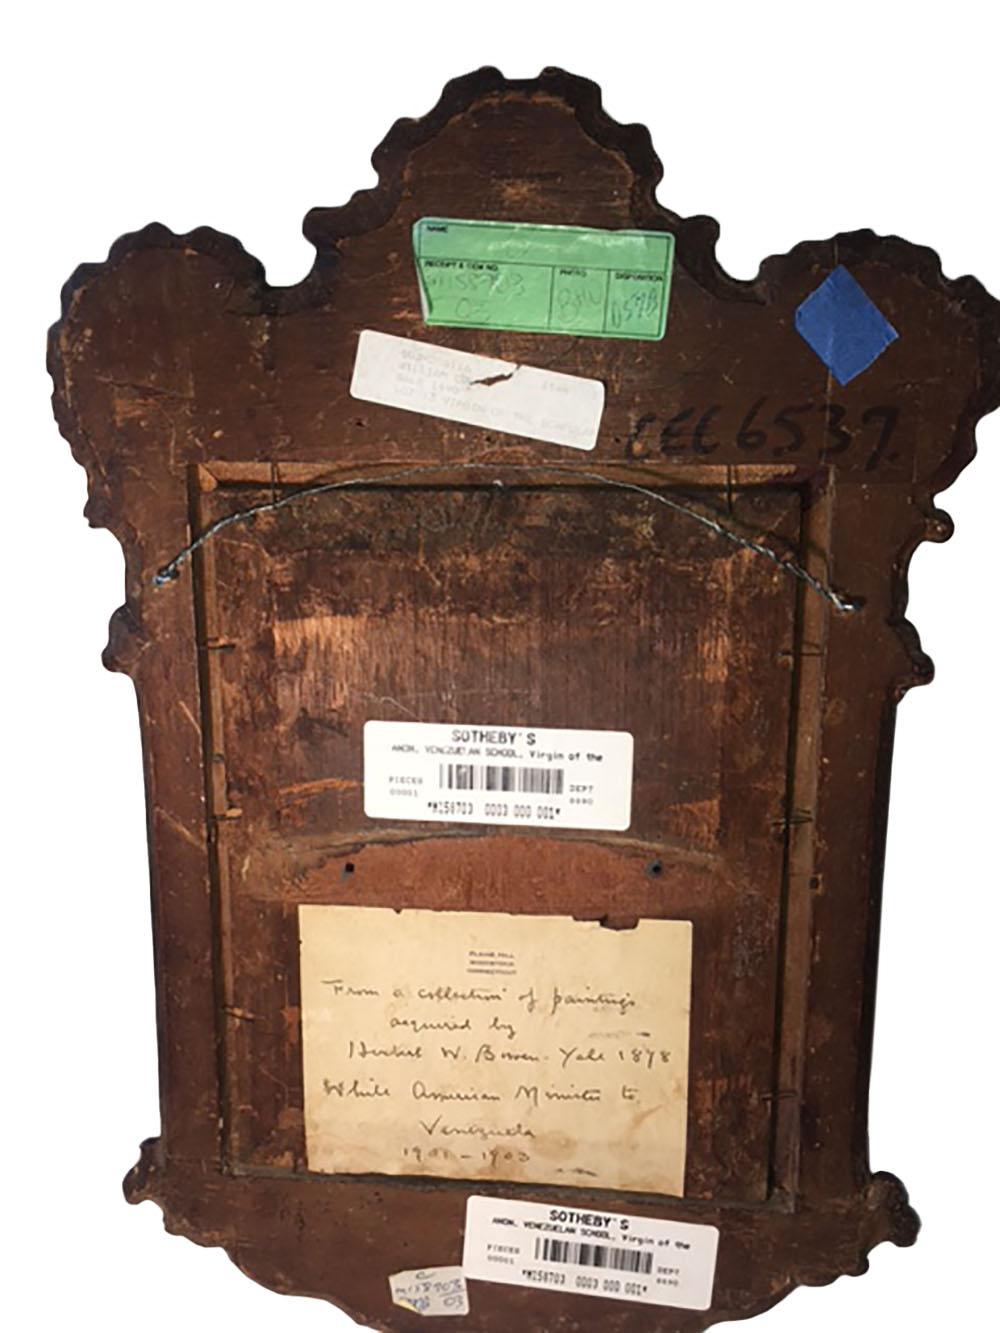 NAME
RECEIPT & ITEM NO.
PHOTO
DISPOSITION
M158703
03
B&W
LOT 13 VIRGIN OF THE
CEC 6537.
SOTHEBY'S
ANON. VENEZUELAN SCHOOL, Virgin of the
PIECES
00001
DEPT
*M158703 0003 000 001*
WOODSTOCK
CONNECTICUT
From a collection of paintings
acquired by
Herbert W. Bowen - Yale 1878
While American Minister to
Venezuela
1901 - 1903
SOTHEBY'S
ANON. VENEZUELAN SCHOOL, Virgin of the
PIECES
00001
DEPT
*M158703 0003 000 001*
C
M158703
03